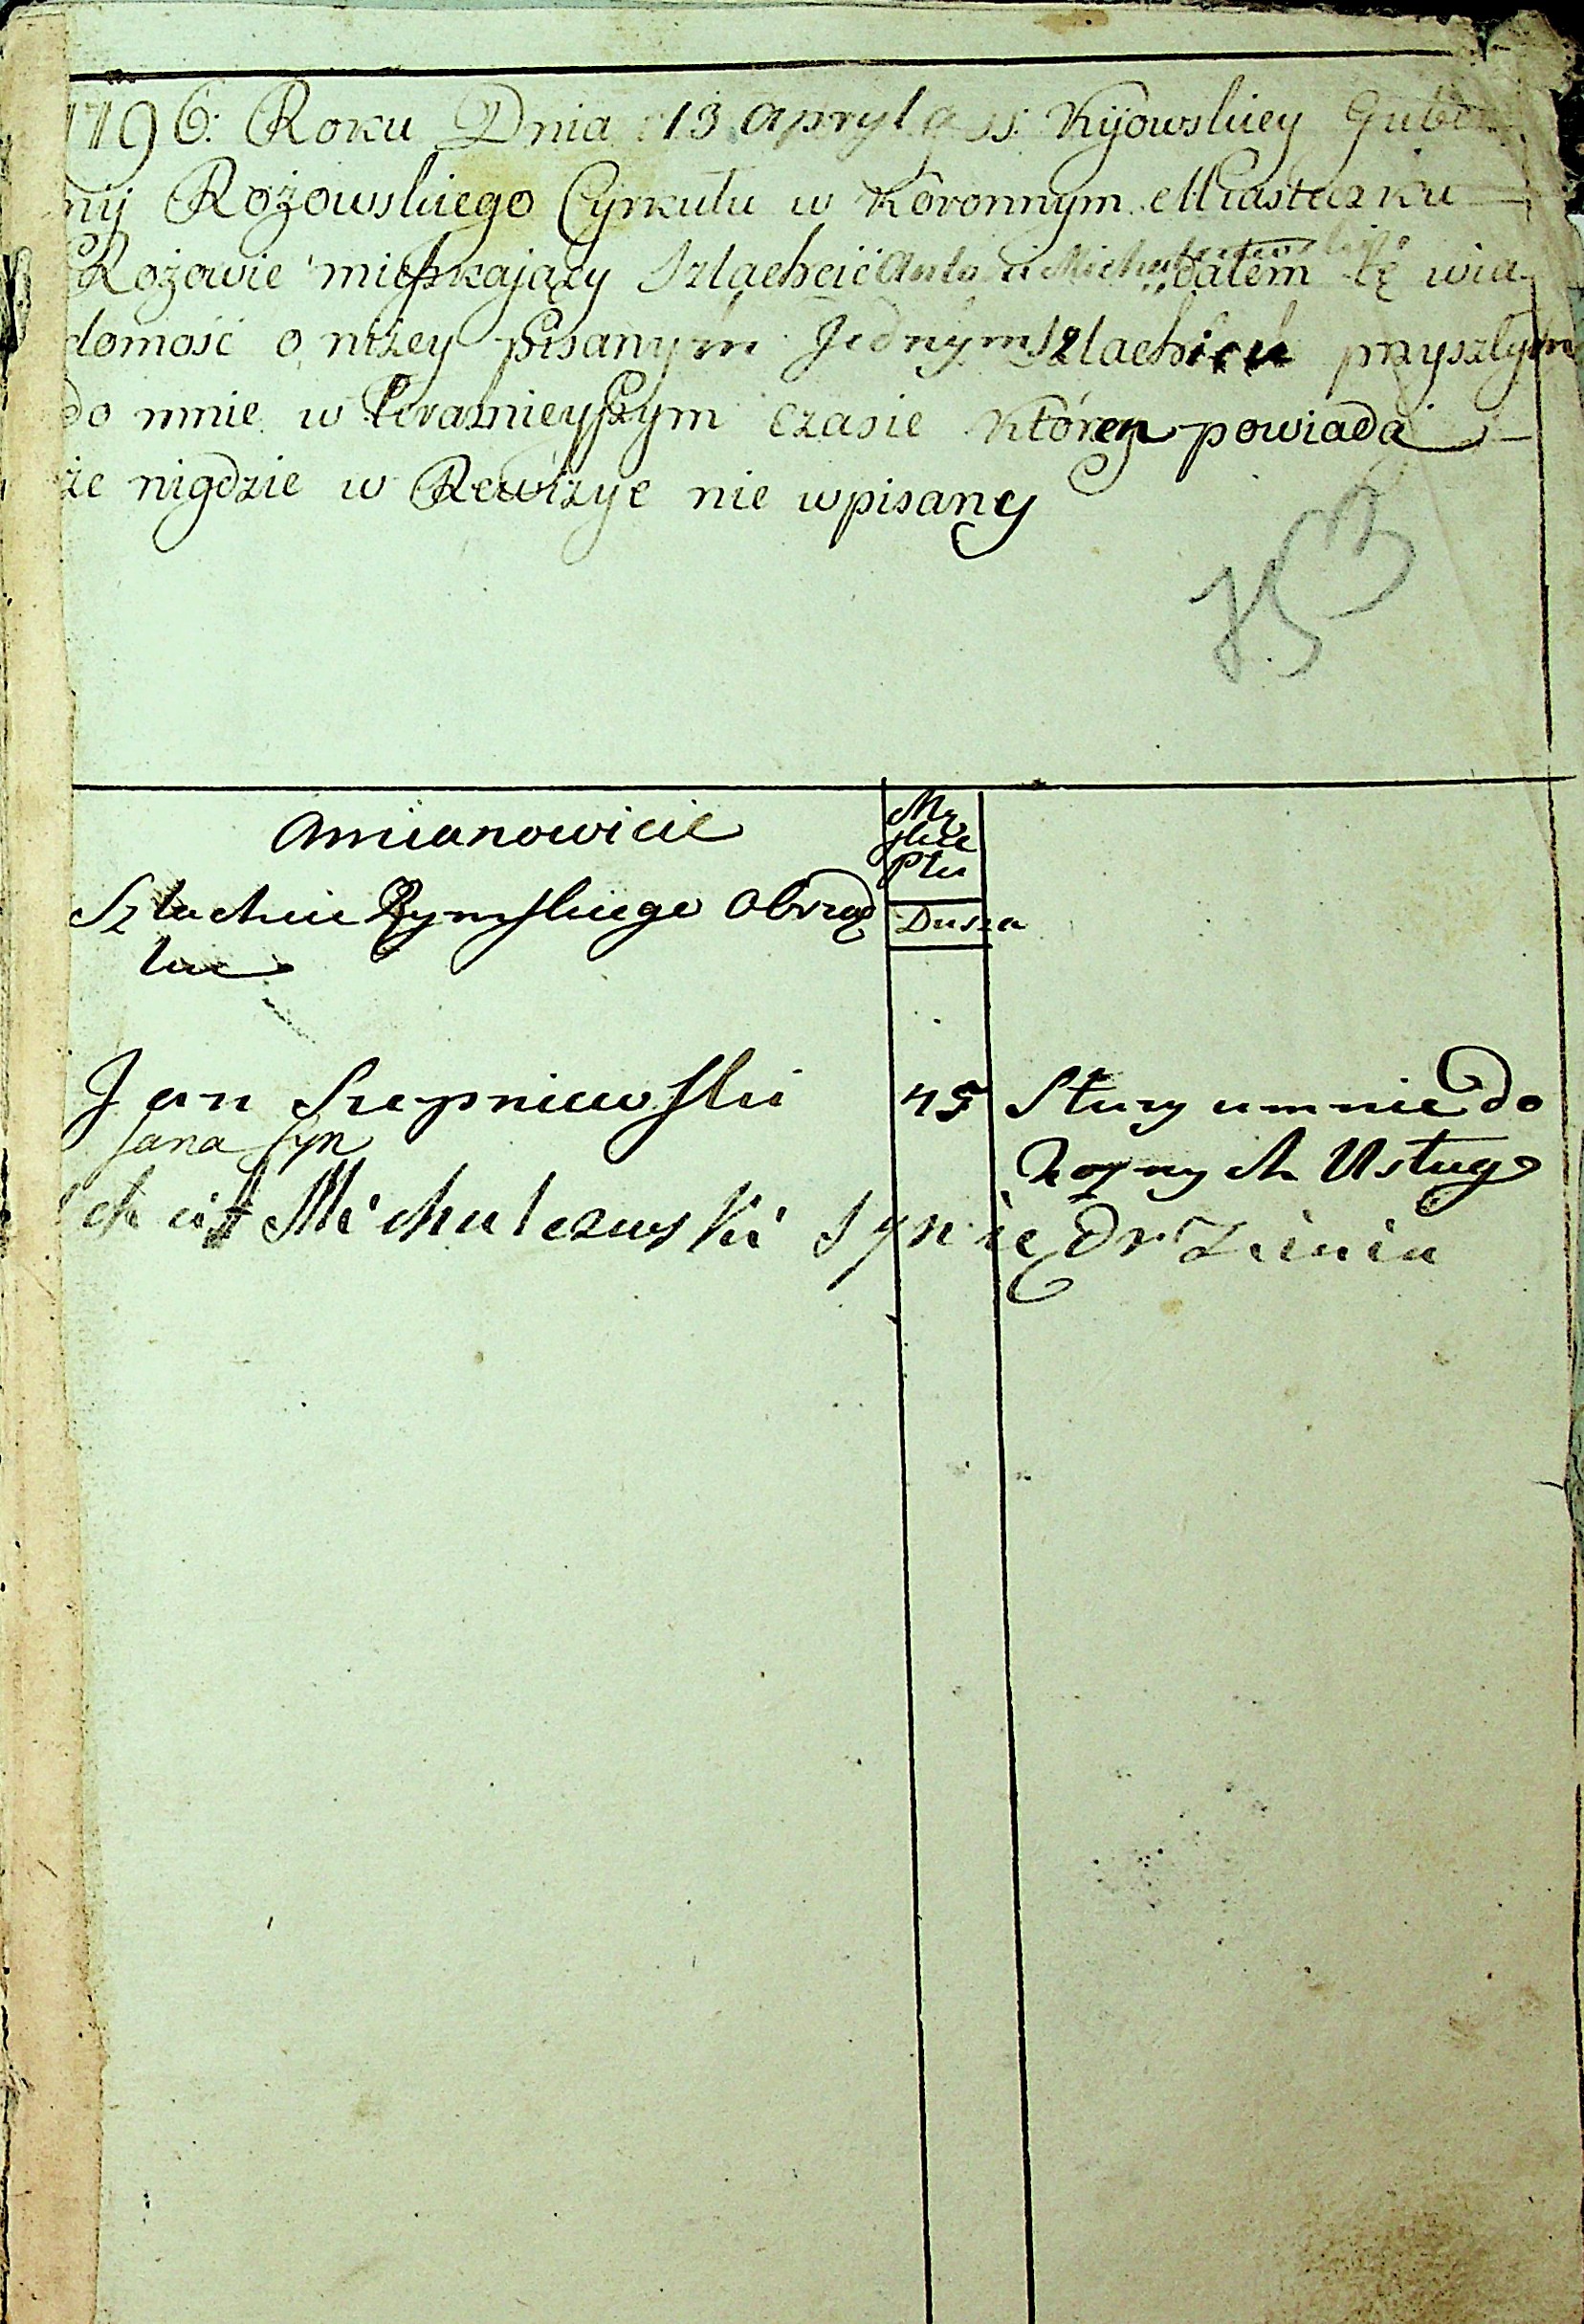 1796: Roku Dnia 13 Apryla Kijowskiey Guber
nij Rożowskiego Cyrkułu w Koronnym Miasteczku
Rożowie mieszkaiący Szlachcic dałem tę wia
domość o niżey pisanym Jednym Szlachicu przyszłym
do mnie w teraznieyszym czasie któren powiada
że nigdzie w Rewizye nie wpisany
753
Amianowicie
Mę
skie
Płci
Szlachcic Rzymskiego Obrząd
ku
Dusza
Jan Stepniewski
45
Służy u mnie do
Jana syn
rożnych Usług
Michalczewski